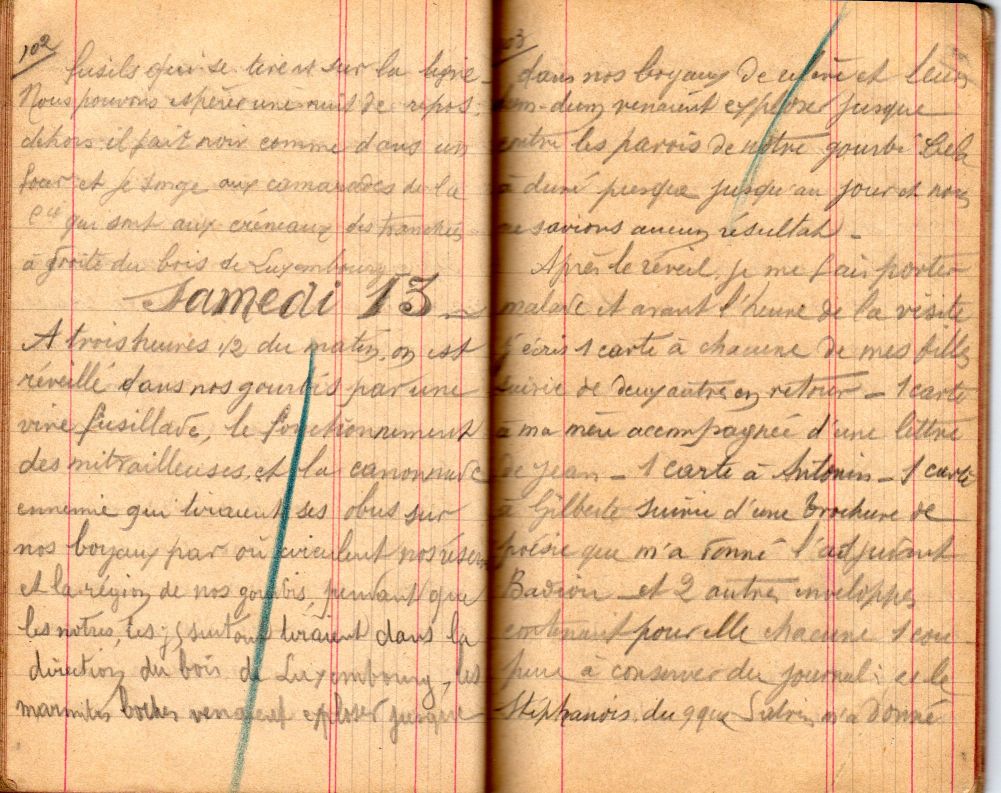 102
fusils qui se tirent sur la ligne
Nous pouvons espérer une nuit de repos.
dehors il fait noir comme dans un
four et je songe aux camarades de la
Cie qui sont aux créneaux des tranchées
à droite du bois de Luxembourg
Samedi 13
A trois heures 1/2 du matin, on est
réveillé dans nos gourbis par une
vive fusillade, le fonctionnement
des mitrailleuses et la canonnade
ennemie qui tiraient ses obus sur
nos boyaux par où circulent nos
et la région de nos gourbis, pendant que
les nôtres, les 75 surtout tiraient dans la
direction du bois de Luxembourg, les
marmites boches venaient exploser jusque
03
dans nos boyaux de et leurs
dum-dum venaient exploser jusque
entre les parois de notre gourbi Cela
a duré presque jusqu'au jour et nous
ne savions aucun résultat -
Après le réveil, je me fais porter
malade et avant l'heure de la visite
j'écris 1 carte à chacune de mes filles
suivie de deux autres en retour - 1 carte
à ma mère accompagnée d'une lettre
de Jean - 1 carte à Antonin - 1 carte
à Gilberte suivie d'une brochure de
poésie que m'a donné l'adjudant
et 2 autres enveloppes
contenant pour elle chacune 1 cou
pure à conserver du journal
Stéphanois, du 99 que m'a donné